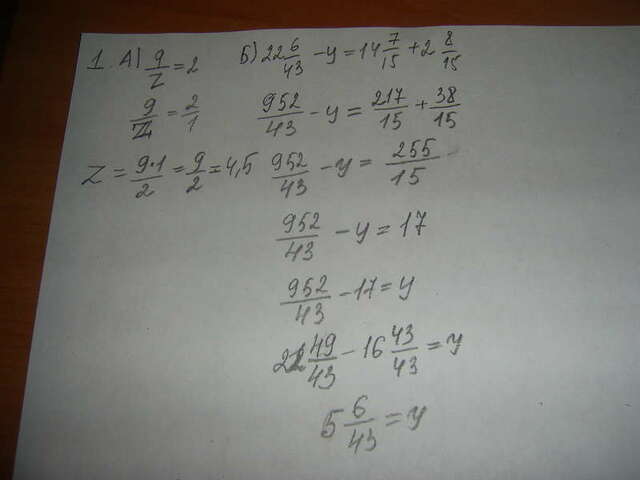 1. А) 9/z = 2
9/z = 2/1
z = 9·1/2 = 9/2 = 4,5
Б) 22 6/43 - y = 14 7/15 + 2 8/15
952/43 - y = 217/15 + 38/15
952/43 - y = 255/15
952/43 - y = 17
952/43 - 17 = y
21 49/43 - 16 43/43 = y
5 6/43 = y